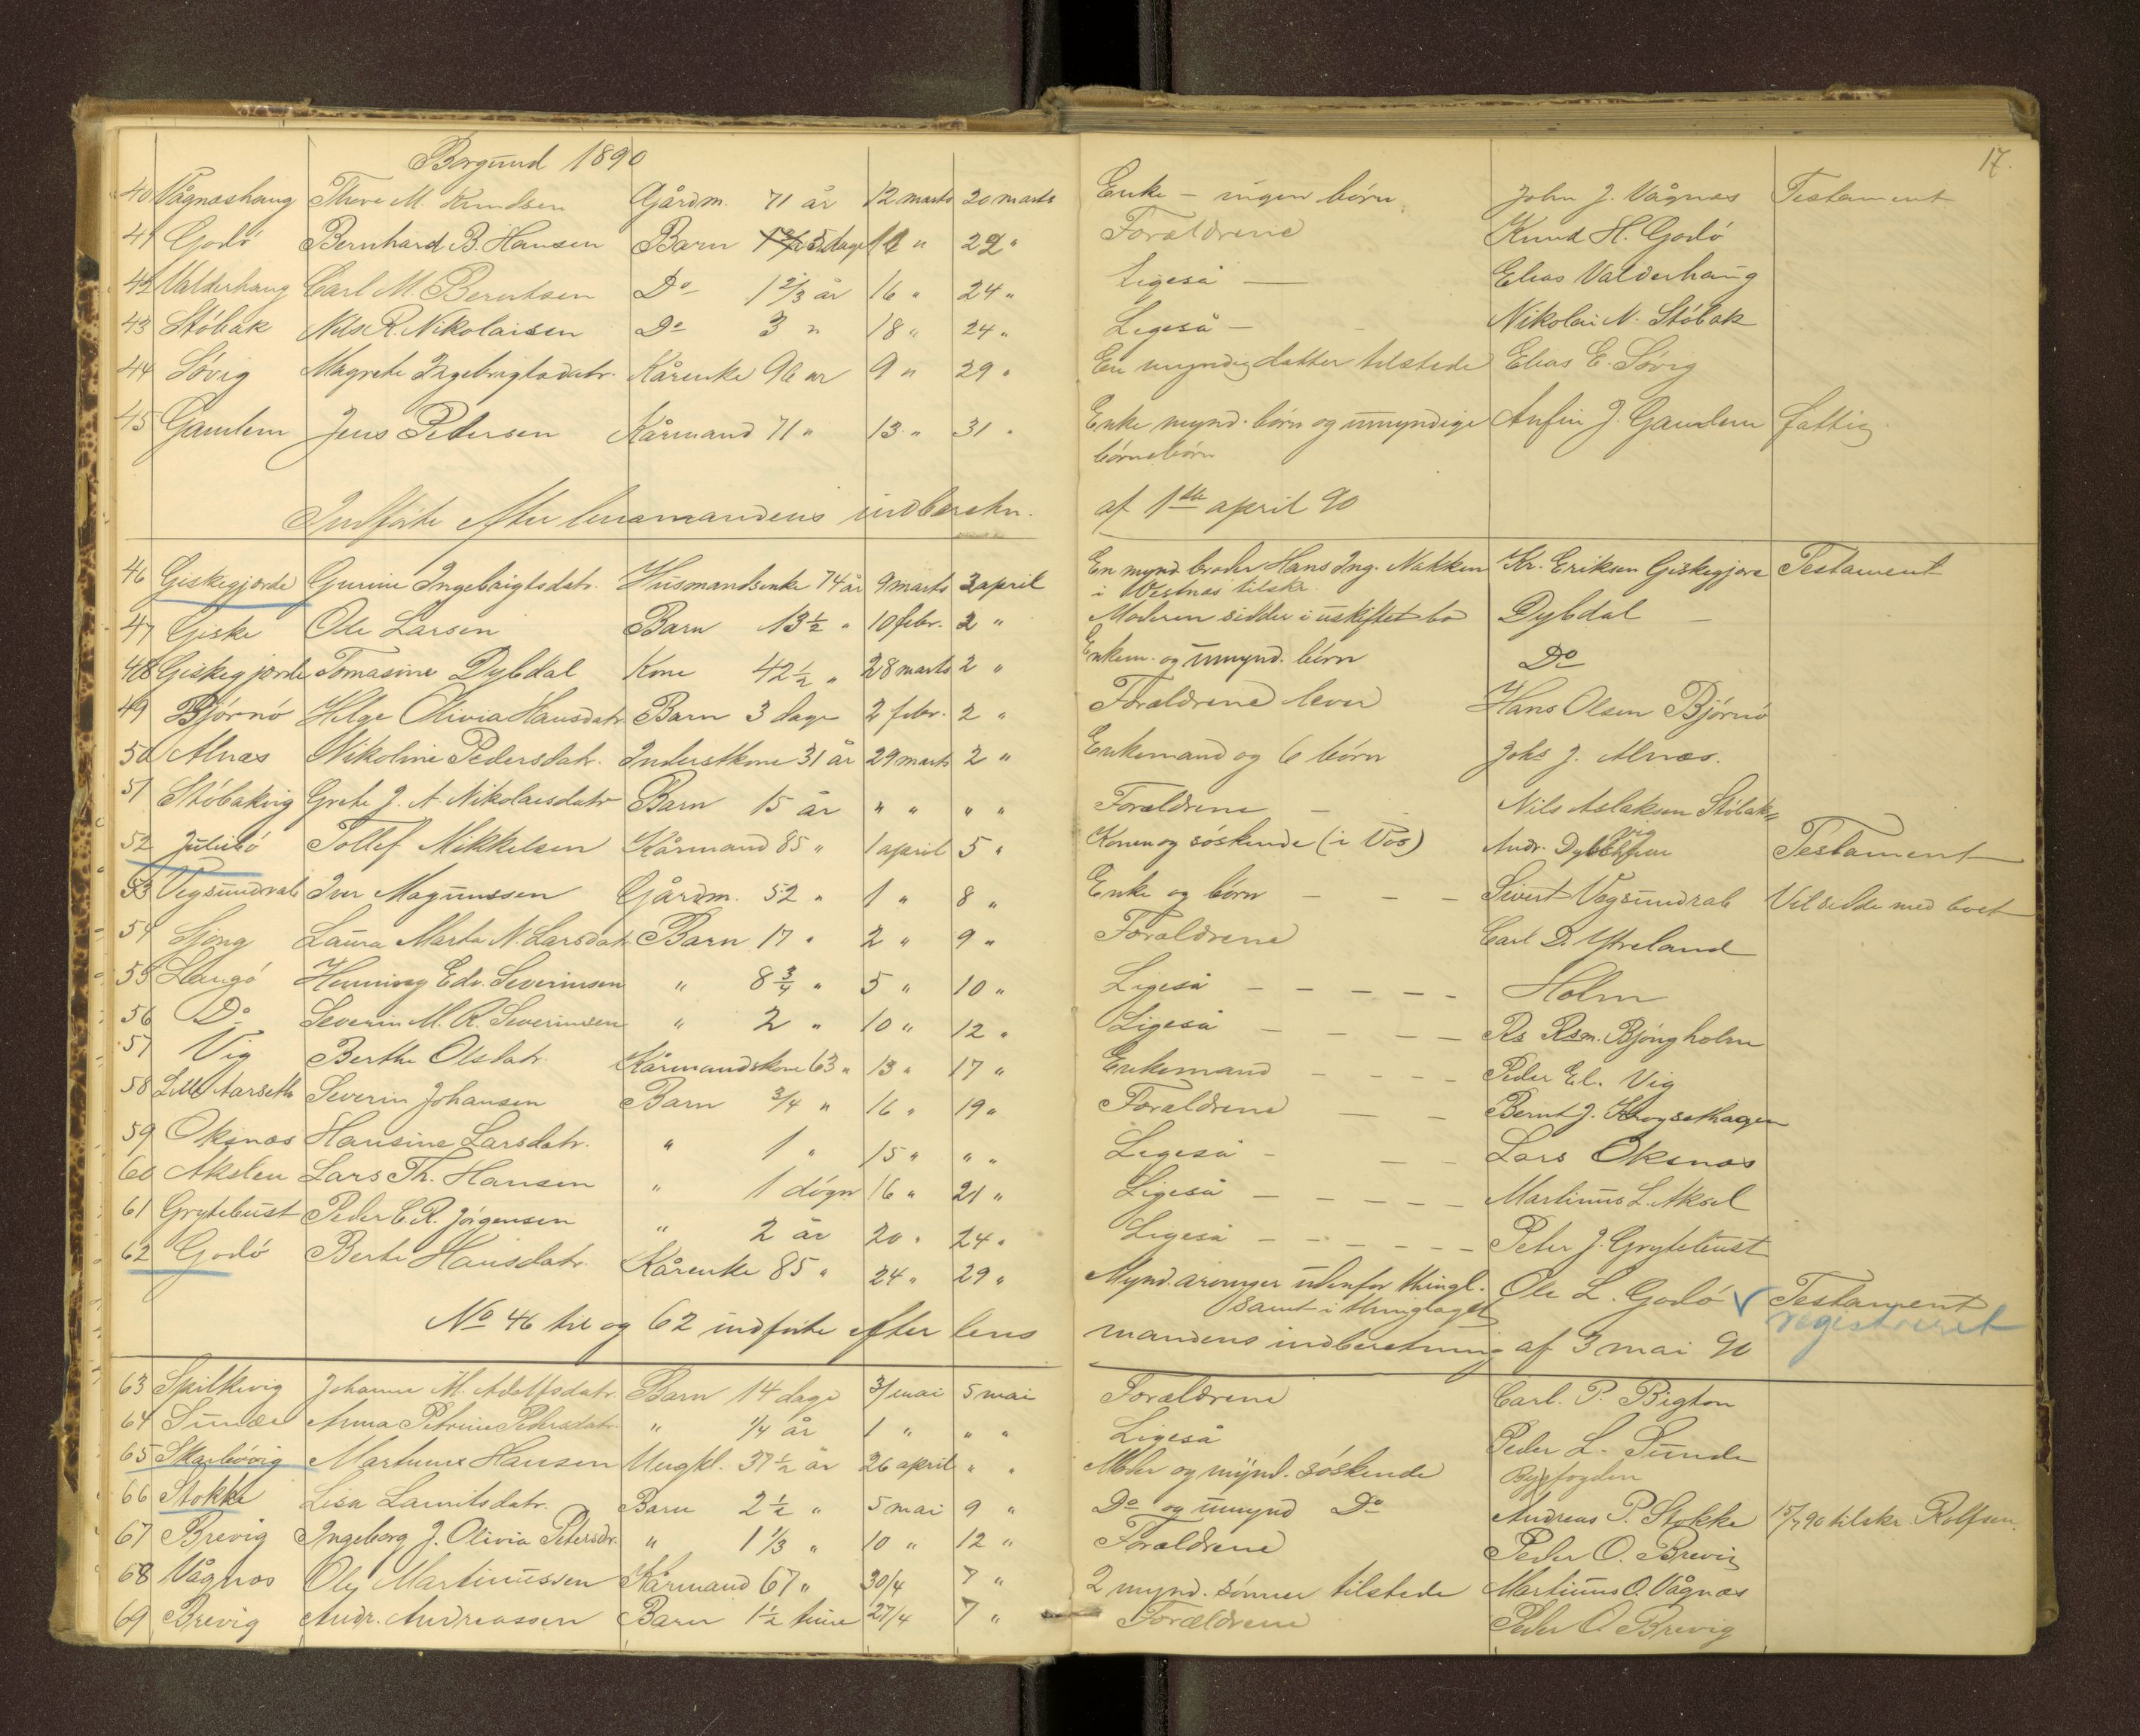 Borgund 1890
17.
40 Vågnæshaug Thore M. Knudsen Gårdm. 71 år 12 marts 20 marts Enke – ingen børn John J. Vågnæs Testament
41 Godö Bernhard B. Hansen Barn 5 dage 16 " 22 " Forældrene Knud H. Godö
42 Valderhaug Carl M. Berntsen Do 1 2/3 år 16 " 24 " Ligeså — Elias Valderhaug
43 Støbak Nils R. Nikolaisen Do 3 " 18 " 24 " Ligeså – Nikolai N. Støbak
44 Søvig Magrete Ingebrigtsdatr. Kårenke 96 år 9 " 29 " En myndig datter tilstede Elias E. Søvig
45 Gamlem Jens Petersen Kårmand 71 " 13 " 31 " Enke mynd. børn og umyndige Anfin J. Gamlem fattig
börnebörn
Indførte efter lensmandens indberetn. af 1ste april 90
46 Giskegjerde Gurine Ingebrigtsdatr. Husmandsenke 74 år 9 marts 3 april En mynd. broder Hans Ing. Nakken Kr. Eriksen Giskegjere Testament
i Vestnæs tilskr.
47 Giske Ole Larsen Barn 13 1/2 " 10 febr. 2 " Moderen sidder i uskiftet bo Dybdal –
48 Giskegjerde Tomasine Dybdal Kone 42 1/2 " 28 marts 2 " Enkem. og umynd. børn Do
49 Bjørnö Helge Olivia Hansdatr. Barn 3 dage 2 febr. 2 " Forældrene lever Hans Olsen Bjørnö
50 Alnæs Nikoline Pedersdatr. Inderstkone 31 år 29 marts 2 " Enkemand og 6 børn Johs J. Alnæs.
51 Støbakvig Grete J. A. Nikolaisdatr Barn 15 år " " " " Forældrene – Nils Aslaksen Støbakv
52 Juliebö Tollef Mikkelsen Kårmand 85 " 1 april 5 " Konen og søskende (i Vos) Andr. Testament
53 Vegsundrab Iver Magnussen Gårdm. 52 " 1 " 8 " Enke og börn – – – Sivert Vegsundrab Vil sidde med boet
54 Sjong Laura Marta N. Larsdatr. Barn 17 " 2 " 9 " Forældrene Carl D. Ytreland
55 Langö Henning Edv. Severinsen " 8 3/4 " 5 " 10 " Ligeså – – – – – Holm
56 Do Severin M. R. Severinsen " 2 " 10 " 12 " Ligeså – – – – Rs Rsm. Bjöngholm
57 Vig Berthe Olsdatr. Kårmandskone 63 " 13 " 17 " Enkemand – – – – Peder El. Vig
58 Lille Aarseth Severin Johansen Barn 3/4 " 16 " 19 " Forældrene — – Bernt J. Krogsethagen
59 Oksnæs Hansine Larsdatr. " 1 " 15 " " " Ligeså – – – Lars Oksnæs
60 Akslen Lars Th. Hansen " 1 døgn 16 " 21 " Ligeså – – – – – Martinus L. Aksel
61 Grytebust Peder C. R. Jörgensen " 2 år 20 " 24 " Ligeså – – – – – Peter J. Grytebust
62 Godö Berte Hansdatr. Kårenke 85 " 24 " 29 " Mynd. arvinger udenfor thingl. Ole L. Godö Testament
samt i thinglaget registreret
No 46 til og 62 indførte efter lensmandens indberetning af 3 mai 90
63 Spilkevig Johanne M. Adolfsdatr. Barn 14 dage 3/ mai 5 mai Forældrene Carl. P. Bigton
64 Sunde Anna Petrine Pedersdatr. " 1/4 år 1 " " " Ligeså Peder L. Sunde
65 Skarbövig Martinus Hansen Ungkl. 37 1/2 år 26 april " " Moder og mynd. søskende Byfogden
66 Stokke Lisa Lauritsdatr. Barn 2 1/2 " 5 mai 9 " Do og umynd Do Andreas P. Stokke 15/7 90 tilskr. Rolfsen.
67 Brevig Ingeborg J. Olivia Petersdr. " 1 1/3 " 10 " 12 " Forældrene Peder O. Brevig
68 Vågnæs Ole Martinussen Kårmand 67 " 30/4 7 " 2 mynd. sønner tilstede Martinus O. Vågnæs
69 Brevig Andr. Andreassen Barn 1 1/2 time 27/4 7 " Forældrene Peder O Brevig